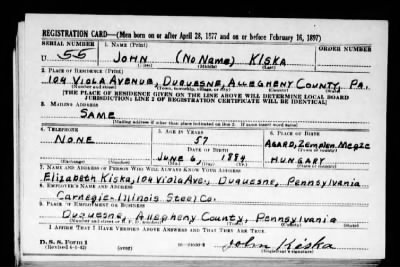 REGISTRATION CARD—(Men born on or after April 28, 1877 and on or before February 16, 1897)
SERIAL NUMBER
1. NAME (Print)
ORDER NUMBER
U 55
JOHN (No Name) KISKA
(First) (Middle) (Last)
2. PLACE OF RESIDENCE (Print)
104 VIOLA AVENUE, DUQUESNE, ALLEGHENY COUNTY, PA.
(Number and street) (Town, township, village, or city) (County) (State)
[THE PLACE OF RESIDENCE GIVEN ON THE LINE ABOVE WILL DETERMINE LOCAL BOARD
JURISDICTION; LINE 2 OF REGISTRATION CERTIFICATE WILL BE IDENTICAL]
3. MAILING ADDRESS
SAME
(Mailing address if other than place indicated on line 2. If same insert word same)
4. TELEPHONE
5. AGE IN YEARS
6. PLACE OF BIRTH
NONE
57
AGARD, Zemplen
DATE OF BIRTH
JUNE 6, 1884
HUNGARY
(Exchange) (Number)
(Mo.) (Day) (Yr.)
7. NAME AND ADDRESS OF PERSON WHO WILL ALWAYS KNOW YOUR ADDRESS
Elizabeth Kiska, 104 Viola Ave., Duquesne, Pennsylvania
8. EMPLOYER'S NAME AND ADDRESS
Carnegie-Illinois Steel Co.
9. PLACE OF EMPLOYMENT OR BUSINESS
Duquesne, Allegheny County, Pennsylvania
I AFFIRM THAT I HAVE VERIFIED ABOVE ANSWERS AND THAT THEY ARE TRUE.
D. S. S. Form 1
(Revised 4-1-42)
(over)
John Kiska